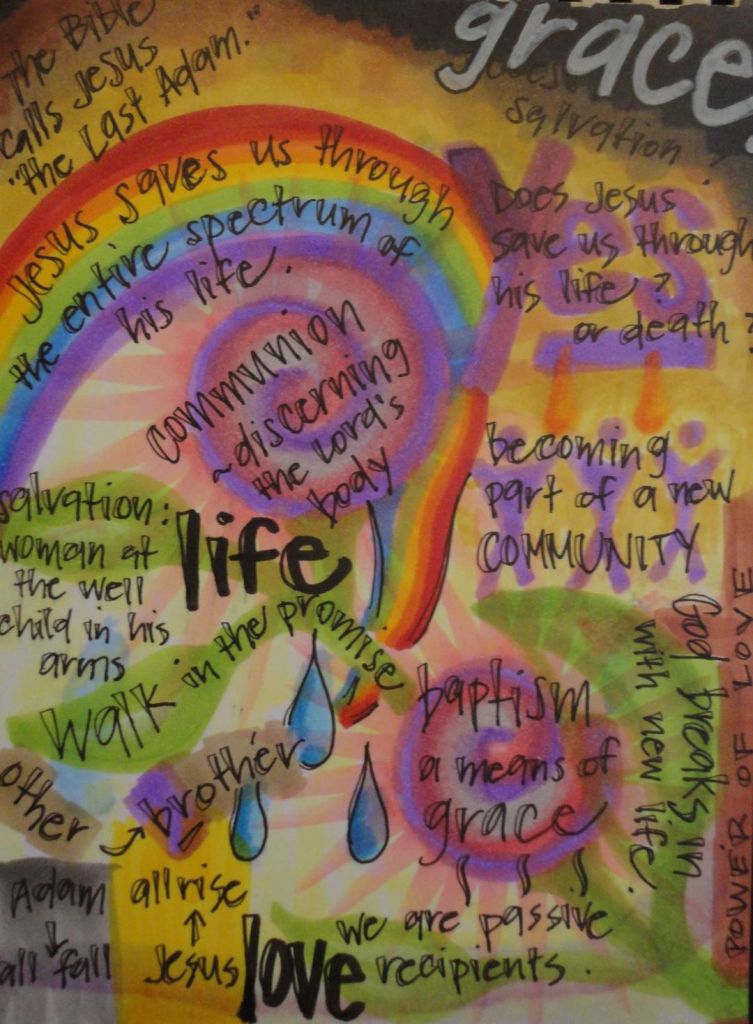 grace.
The Bible
calls Jesus
"the Last Adam."
Does
salvation?
Yes
Jesus saves us through
the entire spectrum of
his life.
Does Jesus
save us through
his life?
or death?
communion
~discerning
the Lord's
body
becoming
part of a new
COMMUNITY
salvation:
woman at
the well
child in his
arms
life
walk in the promise
God breaks in
with new life.
POWER OF LOVE
baptism
a means of
grace
other
brother
Adam
all fall
all rise
Jesus
love
we are passive
recipients.